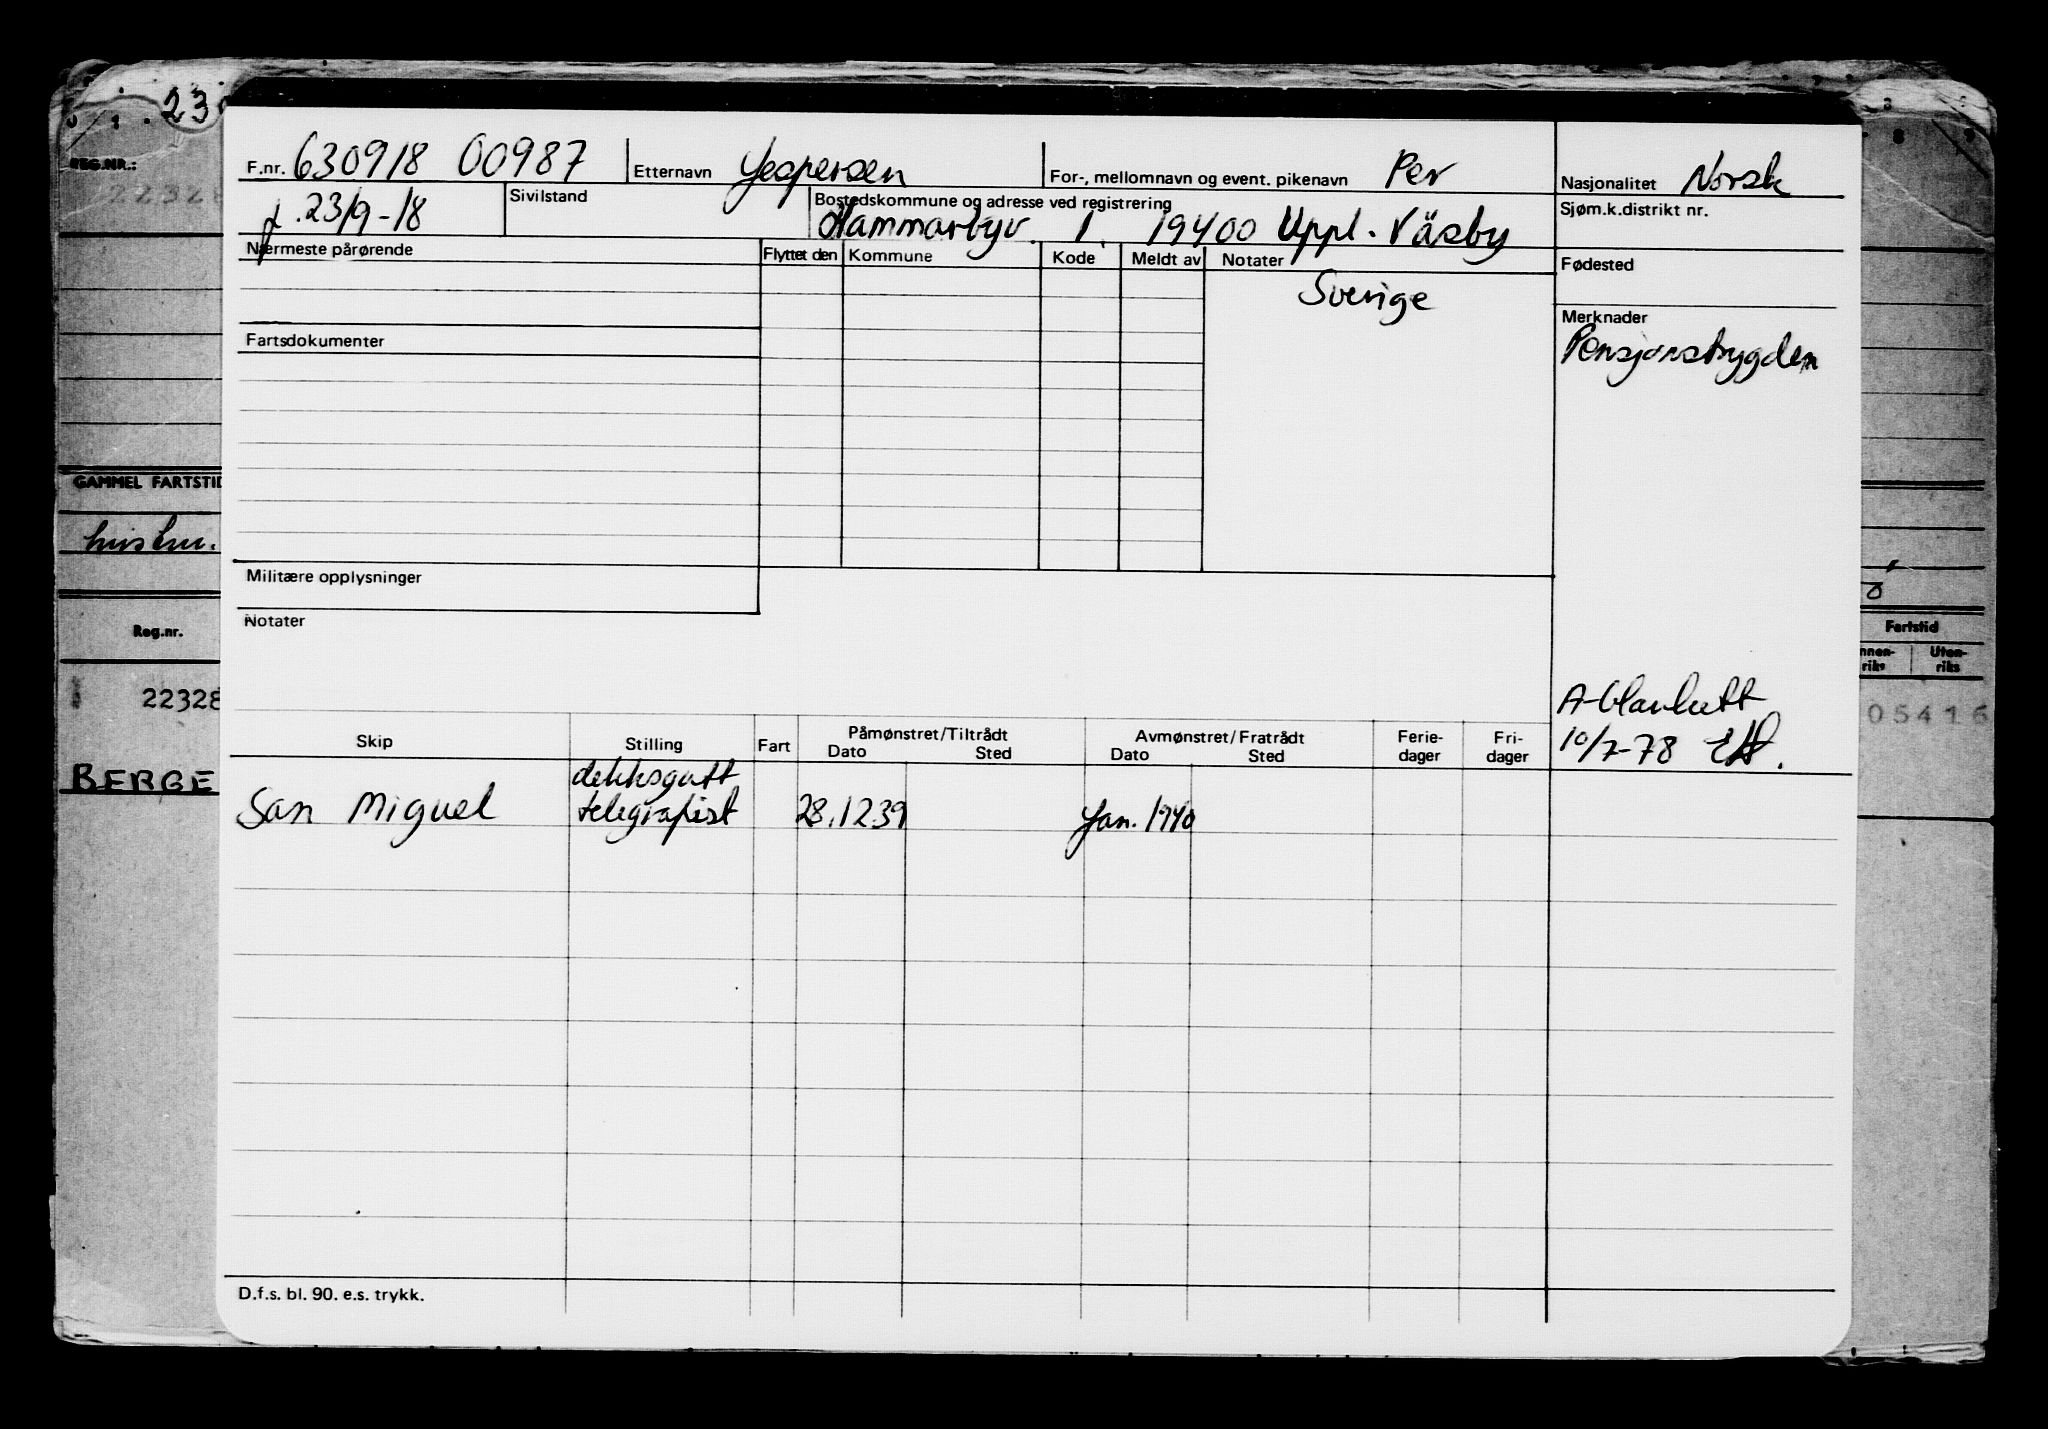 230
REG.NR.:
22328
F.nr. 630918 00987 Etternavn Jespersen For-, mellomnavn og event. pikenavn Per Nasjonalitet Norsk
f. 23/9-18 Sivilstand Bostedskommune og adresse ved registrering Hammarbyv. 1. 19400 Uppl. Väsby Sjøm.k.distrikt nr.
Nærmeste pårørende Flyttet den Kommune Kode Meldt av Notater Fødested
Sverige
Merknader
Pensjonstrygden
Fartsdokumenter
GAMMEL FARTSTID
Militære opplysninger
Notater
Reg.nr. Fartstid
nnen-riks Uten-riks
22328 05416
A-blankett
10/7-78
Skip Stilling Fart Påmønstret/Tiltrådt Avmønstret/Fratrådt Ferie-dager Fri-dager
Dato Sted Dato Sted
BERGE
dekksgutt
San Miguel telegrafist 28.1239 Jan. 1940
D.f.s. bl. 90. e.s. trykk.